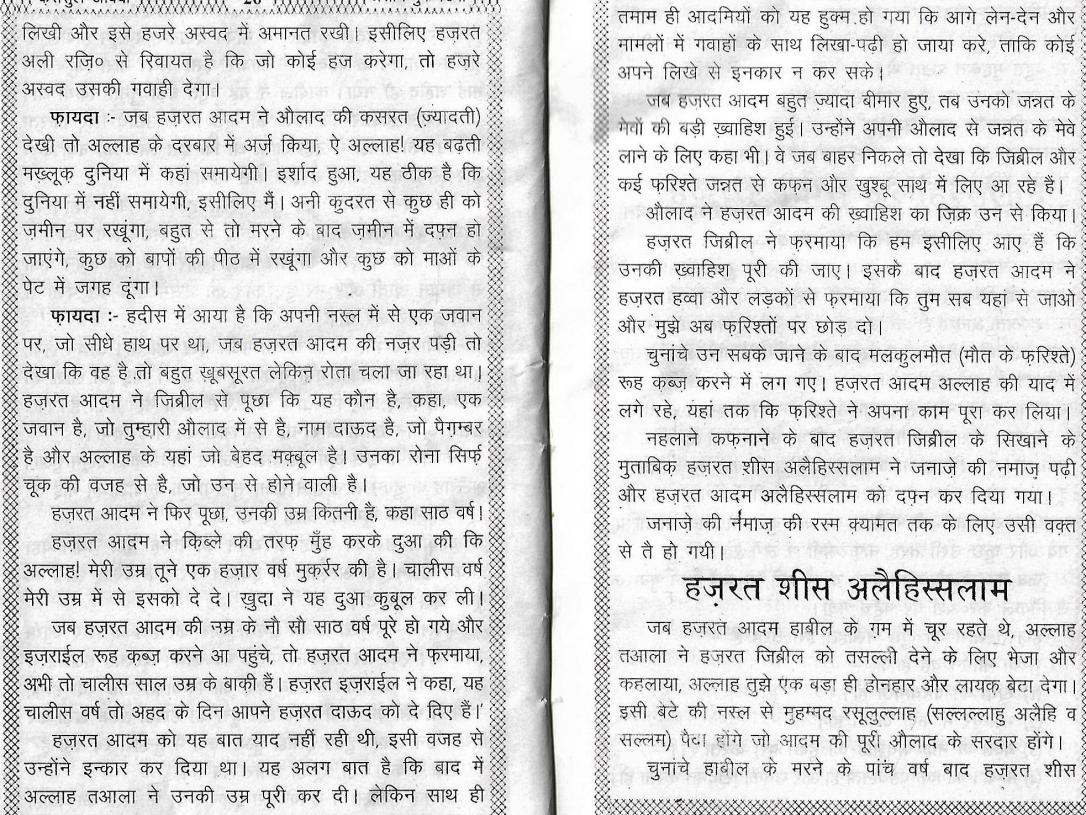 लिखी और इसे हजरे अस्वद में अमानत रखी। इसीलिए हज़रत
अली रज़ि० से रिवायत है कि जो कोई हज करेगा, तो हजरे
अस्वद उसकी गवाही देगा।
फ़ायदा :- जब हज़रत आदम ने औलाद की कसरत (ज़्यादती)
देखी तो अल्लाह के दरबार में अर्ज़ किया, ऐ अल्लाह! यह बढ़ती
मख़्लूक़ दुनिया में कहां समायेगी। इर्शाद हुआ, यह ठीक है कि
दुनिया में नहीं समायेगी, इसीलिए मैं। अनी कुदरत से कुछ ही को
ज़मीन पर रखूंगा, बहुत से तो मरने के बाद ज़मीन में दफ़्न हो
जाएंगे, कुछ को बापों की पीठ में रखूंगा और कुछ को माओं के
पेट में जगह दूंगा।
फ़ायदा :- हदीस में आया है कि अपनी नस्ल में से एक जवान
पर, जो सीधे हाथ पर था, जब हज़रत आदम की नज़र पड़ी तो
देखा कि वह है तो बहुत ख़ूबसूरत लेकिन रोता चला जा रहा था।
हज़रत आदम ने जिब्रील से पूछा कि यह कौन है, कहा, एक
जवान है, जो तुम्हारी औलाद में से है, नाम दाऊद है, जो पैगम्बर
है और अल्लाह के यहां जो बेहद मक़्बूल है। उनका रोना सिर्फ़
चूक की वजह से है, जो उन से होने वाली है।
हज़रत आदम ने फिर पूछा, उनकी उम्र कितनी है, कहा साठ वर्ष।
हज़रत आदम ने क़िब्ले की तरफ़ मुँह करके दुआ की कि
अल्लाह! मेरी उम्र तूने एक हज़ार वर्ष मुक़र्रर की है। चालीस वर्ष
मेरी उम्र में से इसको दे दे। खुदा ने यह दुआ क़ुबूल कर ली।
जब हज़रत आदम की नम्र के नौ सौ साठ वर्ष पूरे हो गये और
इज़राईल रूह क़ब्ज़ करने आ पहुंचे, तो हज़रत आदम ने फ़रमाया,
अभी तो चालीस साल उम्र के बाक़ी हैं। हज़रत इज़राईल ने कहा, यह
चालीस वर्ष तो अहद के दिन आपने हज़रत दाऊद को दे दिए हैं।
हज़रत आदम को यह बात याद नहीं रही थी, इसी वजह से
उन्होंने इन्कार कर दिया था। यह अलग बात है कि बाद में
अल्लाह तआला ने उनकी उम्र पूरी कर दी। लेकिन साथ ही
तमाम ही आदमियों को यह हुक्म हो गया कि आगे लेन-देन और
मामलों में गवाहों के साथ लिखा-पढ़ी हो जाया करे, ताकि कोई
अपने लिखे से इनकार न कर सके।
जब हज़रत आदम बहुत ज़्यादा बीमार हुए, तब उनको जन्नत के
मेवों की बड़ी ख़्वाहिश हुई। उन्होंने अपनी औलाद से जन्नत के मेवे
लाने के लिए कहा भी। वे जब बाहर निकले तो देखा कि जिब्रील और
कई फ़रिश्ते जन्नत से कफ़न और ख़ुश्बू साथ में लिए आ रहे हैं।
औलाद ने हज़रत आदम की ख़्वाहिश का ज़िक्र उन से किया।
हज़रत जिब्रील ने फ़रमाया कि हम इसीलिए आए हैं कि
उनकी ख़्वाहिश पूरी की जाए। इसके बाद हज़रत आदम ने
हज़रत हव्वा और लड़कों से फ़रमाया कि तुम सब यहां से जाओ
और मुझे अब फ़रिश्तों पर छोड़ दो।
चुनांचे उन सबके जाने के बाद मलकुलमौत (मौत के फ़रिश्ते)
रूह क़ब्ज़ करने में लग गए। हज़रत आदम अल्लाह की याद में
लगे रहे, यहां तक कि फ़रिश्ते ने अपना काम पूरा कर लिया।
नहलाने कफ़नाने के बाद हज़रत जिब्रील के सिखाने के
मुताबिक़ हज़रत शीस अलैहिस्सलाम ने जनाज़े की नमाज़ पढ़ी
और हज़रत आदम अलैहिस्सलाम को दफ़्न कर दिया गया।
जनाज़े की नमाज़ की रस्म क्यामत तक के लिए उसी वक़्त
से तै हो गयी।
हज़रत शीस अलैहिस्सलाम
जब हज़रत आदम हाबील के ग़म में चूर रहते थे, अल्लाह
तआला ने हज़रत जिब्रील को तसल्ली देने के लिए भेजा और
कहलाया, अल्लाह तुझे एक बड़ा ही होनहार और लायक़ बेटा देगा।
इसी बेटे की नस्ल से मुहम्मद रसूलुल्लाह (सल्लल्लाहु अलैहि व
सल्लम) पैदा होंगे जो आदम की पूरी औलाद के सरदार होंगे।
चुनांचे हाबील के मरने के पांच वर्ष बाद हज़रत शीस